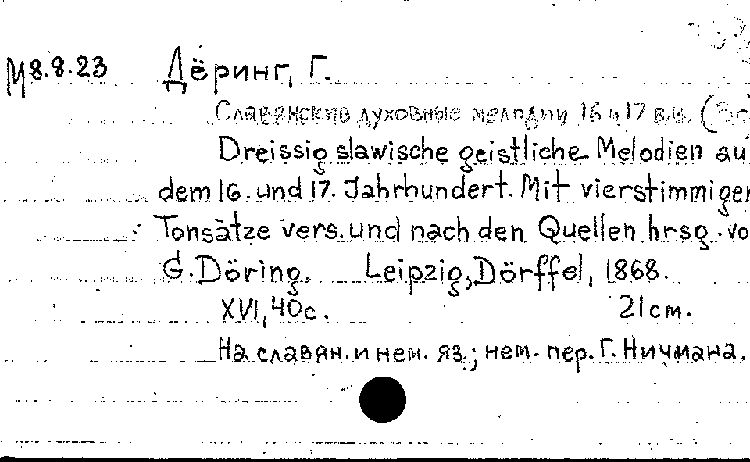 М8.8.23 Дёринг, Г.
Славянские духовные мелодии 16 и 17 в.в.
Dreissig slawische geistliche Melodien au
dem 16. und 17. Jahrhundert. Mit vierstimmigen
Tonsätze vers. und nach den Quellen hrsg. vo
G. Döring. Leipzig, Dörffel, 1868.
XVI, 40 с. 21 см.
На славян. и нем. яз.; нем. пер. Г. Ничмана.